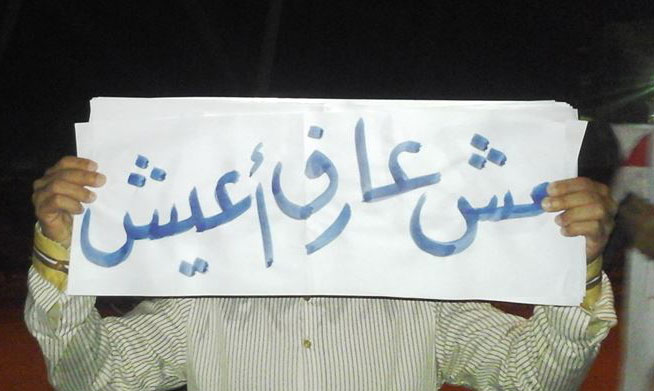 مش عارف أعيش